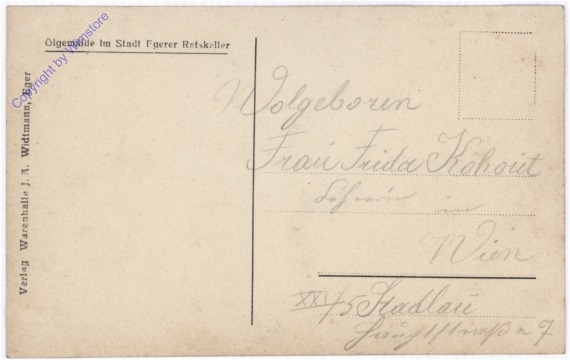 Ölgemälde im Stadt Egerer Ratskeller
Copyright by Wnstore
Verlag Warenhalle J. A. Widtmann, Eger
Wolgeboren
Frau Frida Kohout
in
Wien
XXI/5 Stadlau
Hauptstraße 7